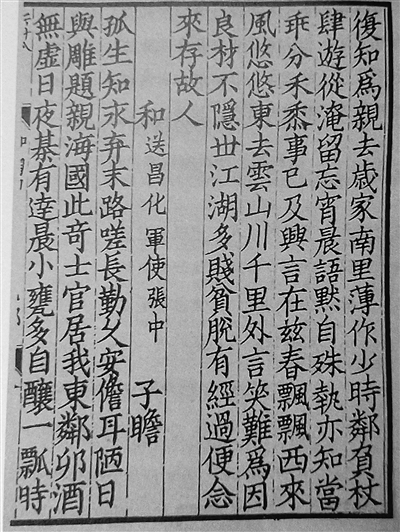 復知爲親去歲家南里薄作少時鄰負杖
肆遊從淹留忘宵晨語默自殊執亦知當
乖分禾黍事已及興言在兹春飄飄西來
風悠悠東去雲山川千里外言笑難爲因
良材不隱世江湖多賤貧脫有經過便念
來存故人
和送昌化軍使張中 子瞻
孤生知永弃末路嗟長勤久安儋耳陋日
與雕題親海國此奇士官居我東鄰卯酒
無虛日夜棊有達晨小甕多自釀一瓢時